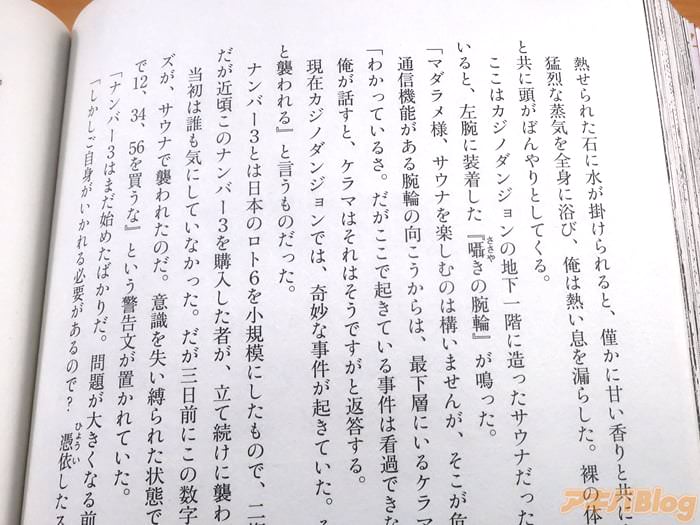 熱せられた石に水が掛けられると、僅かに甘い香りと共に
猛烈な蒸気を全身に浴び、俺は熱い息を漏らした。裸の体
と共に頭がぼんやりとしてくる。
ここはカジノダンジョンの地下一階に造ったサウナだった
いると、左腕に装着した『囁きの腕輪』が鳴った。
ささや
「マダラメ様、サウナを楽しむのは構いませんが、そこが危
通信機能がある腕輪の向こうからは、最下層にいるケラマ
「わかっているさ。だがここで起きている事件は看過できな
俺が話すと、ケラマはそれはそうですがと返答する。
現在カジノダンジョンでは、奇妙な事件が起きていた。
と襲われる』と言うものだった。
ナンバー3とは日本のロト6を小規模にしたもので、二
だが近頃このナンバー3を購入した者が、立て続けに襲わ
当初は誰も気にしていなかった。だが三日前にこの数字
ズが、サウナで襲われたのだ。意識を失い縛られた状態で
で12、34、56を買うな』という警告文が置かれていた。
「ナンバー3はまだ始めたばかりだ。問題が大きくなる前
「しかしご自身がいかれる必要があるので？　憑依したる
ひょうい
アキバBlog